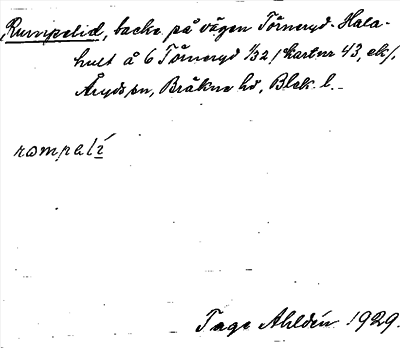 Rumpelid, backe på vägen Törneryd-Hala-
hult å 6 Törneryd 1/32 (kartnr 43, ek),
Åryds sn, Bräkne hd, Blek. l.
rωmpəlí
Tage Ahldén 1929.